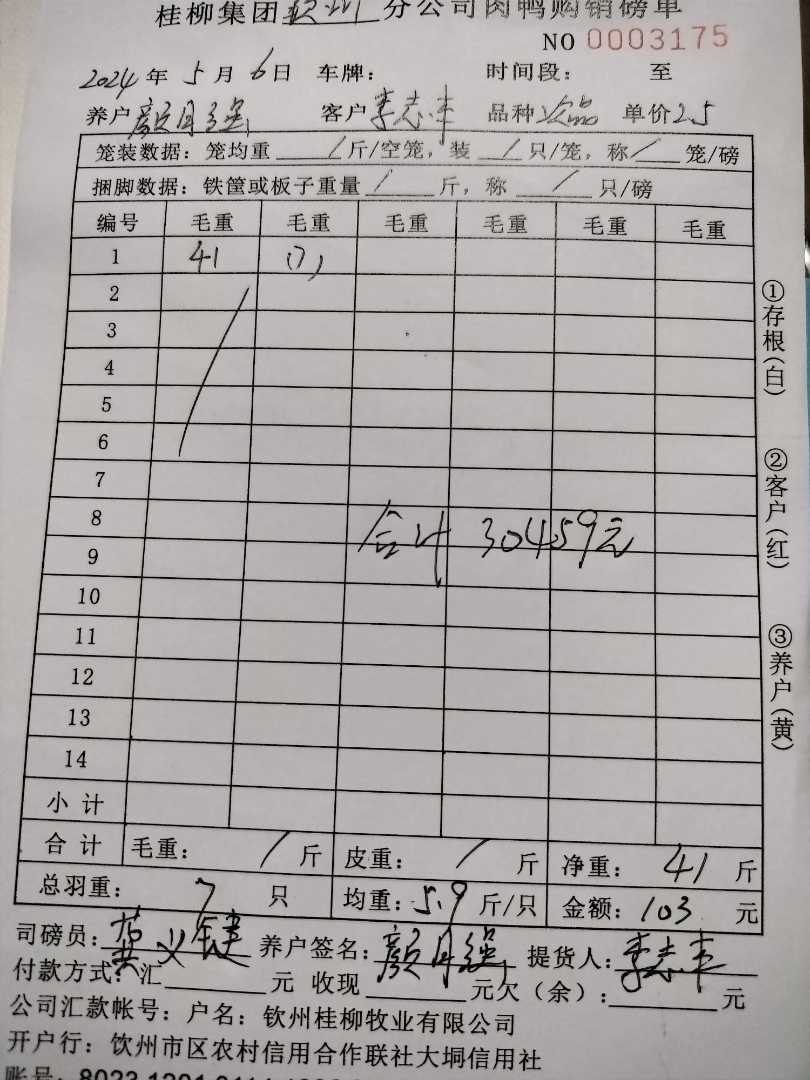 桂柳集团钦州分公司肉鸭购销磅单
NO 0003175
2024年5月6日 车牌: 时间段: 至
养户颜月强 客户李志丰 品种次品 单价2.5
笼装数据: 笼均重 / 斤/空笼, 装 / 只/笼, 称 / 笼/磅
捆脚数据: 铁筐或板子重量 / 斤, 称 / 只/磅
编号 毛重 毛重 毛重 毛重 毛重 毛重
1 41 (7)
2
3
4
5
6
7
8
合计 30459元
9
10
11
12
13
14
小计
合计 毛重: / 斤 皮重: / 斤 净重: 41 斤
总羽重: 7 只 均重: 5.9 斤/只 金额: 103 元
司磅员: 养户签名: 颜月强 提货人: 李志丰
付款方式: 汇 元 收现 元欠(余): 元
公司汇款帐号: 户名: 钦州桂柳牧业有限公司
开户行: 钦州市区农村信用合作联社大垌信用社
账号: 8023 1201
①存根(白)
②客户(红)
③养户(黄)